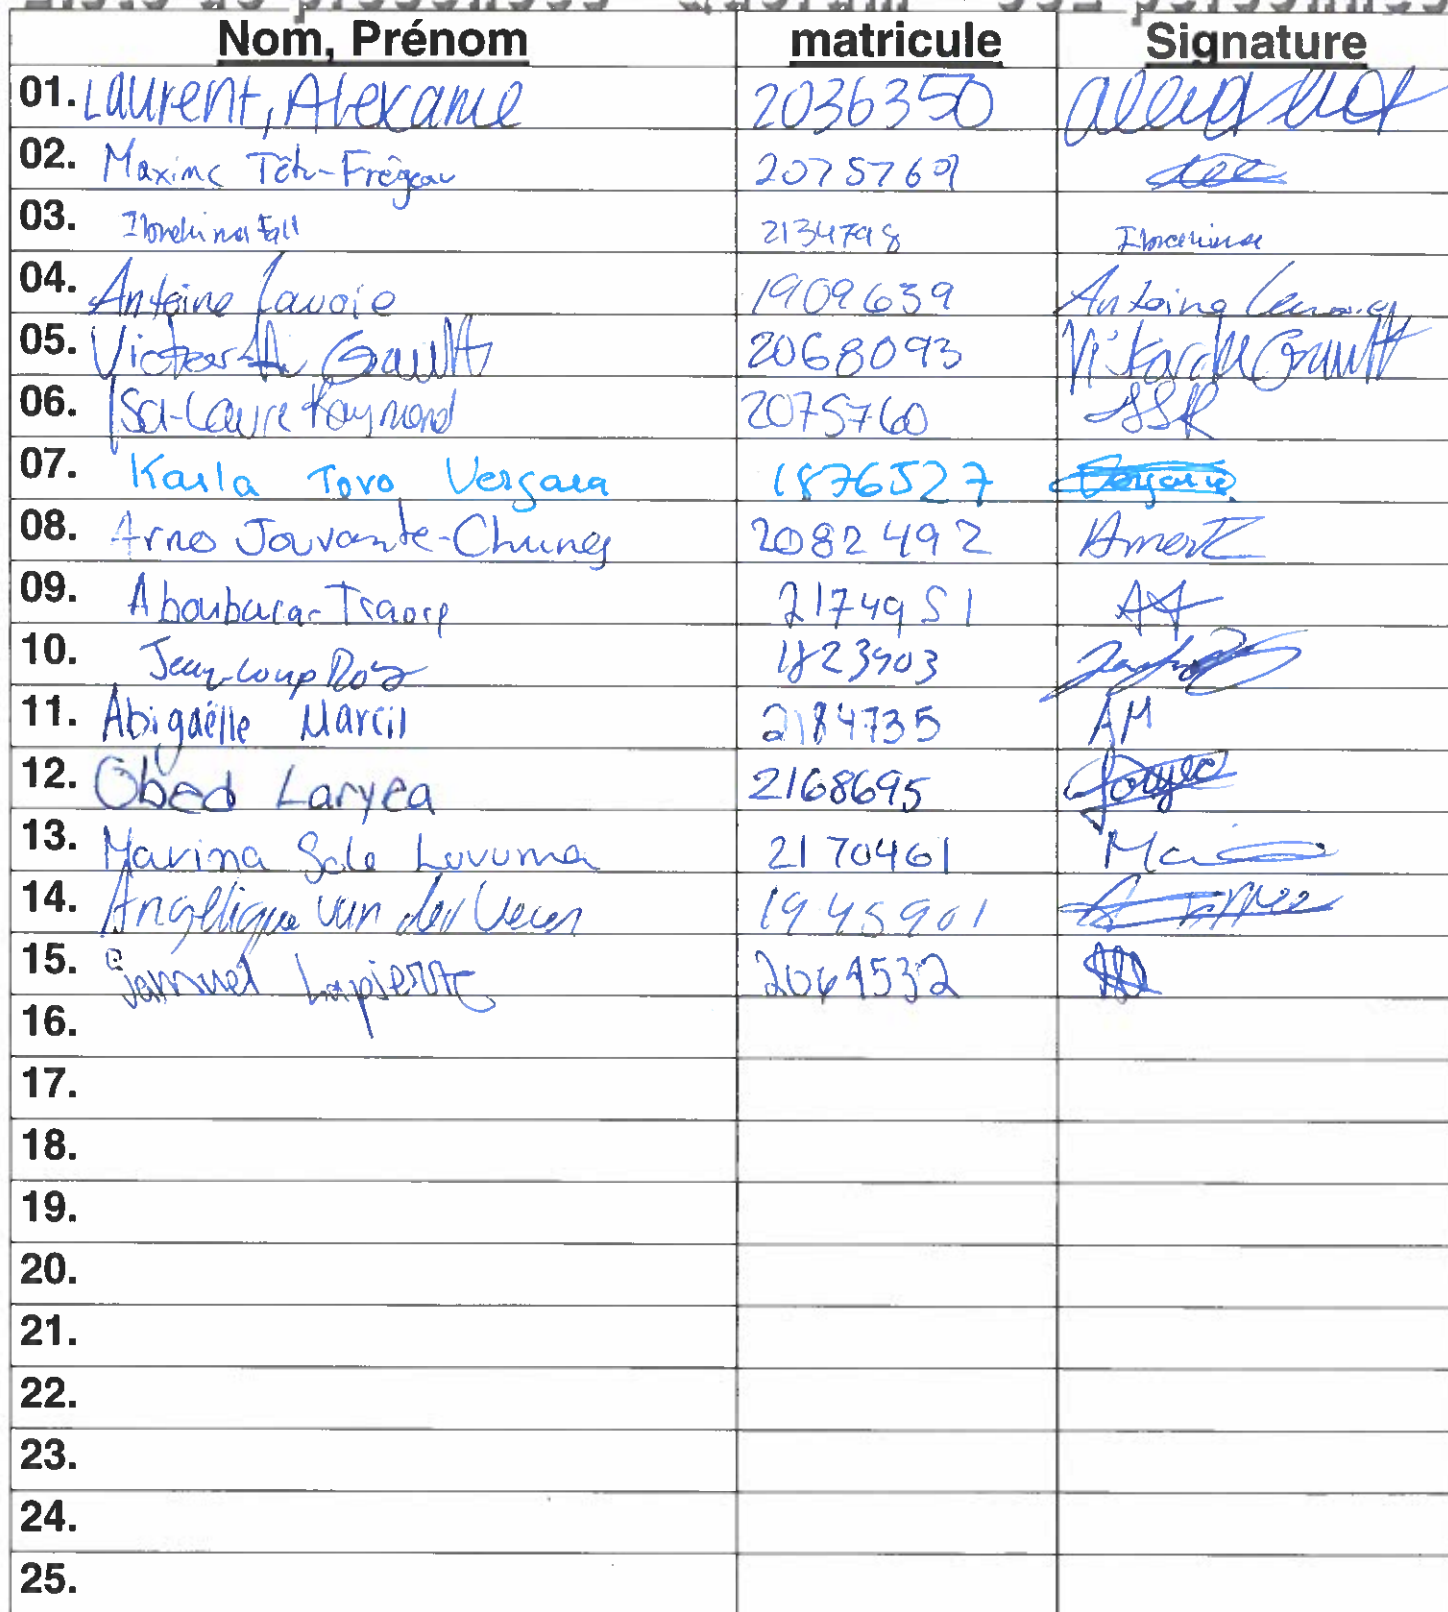 Liste de présences - Quorum
Nom, Prénom matricule Signature
01. Laurent, Alexane 2036350
02. Maxime Têtu-Frégeau 2075769
03. Ibrahima Fall 2134798 Ibrahima
04. Antoine Lavoie 1909639 Antoine Lavoie
05. Gault 2068093 Gault
06. Isa-Laure Raymond 2075760
07. Karla Toro Vergara 1876527
08. Arno Jouvante-Chunes 2082492
09. Aboubacar Traore 2174951
10. Jean-Loup Roy 1823903
11. Abigaëlle Marcil 2184735 AM
12. Obed Laryea 2168695
13. Marina Lovuma 2170461
14. Angélique van der Veen 1945901
15. Samuel Lapierre 2064532
16.
17.
18.
19.
20.
21.
22.
23.
24.
25.